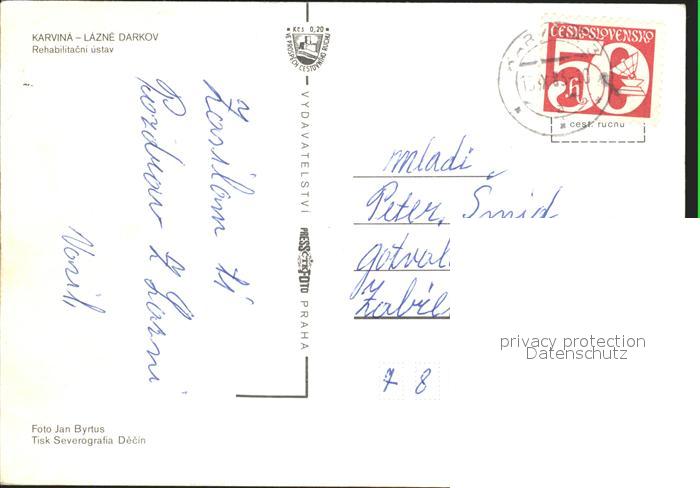 KARVINÁ – LÁZNĚ DARKOV
Rehabilitační ústav
Kčs 0,20
VE PROSPĚCH CESTOVNÍHO RUCHU
ČESKOSLOVENSKO
50 h
cest. ruchu
Zasílám ti
pozdrav z Lázní
VYDAVATELSTVÍ PRESSFOTO PRAHA
ČTK
mladí
Peter, Šmid
gotval
Zábře
7 8
privacy protection
Datenschutz
Foto Jan Byrtus
Tisk Severografia Děčín